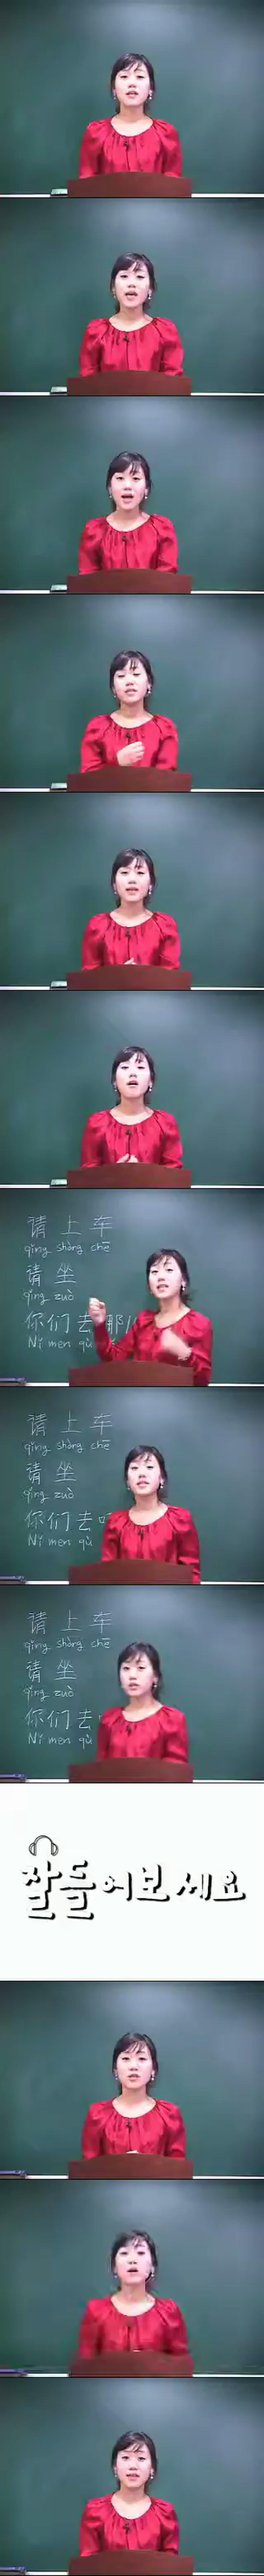 请 上 车
qǐng shàng chē
请 坐
qǐng zuò
你们去
Nǐ men qù
请 上 车
qǐng shàng chē
请 坐
qǐng zuò
你们去
Nǐ men qù
请 上 车
qǐng shàng chē
请 坐
qǐng zuò
你们去
Nǐ men qù
잘들어보세요